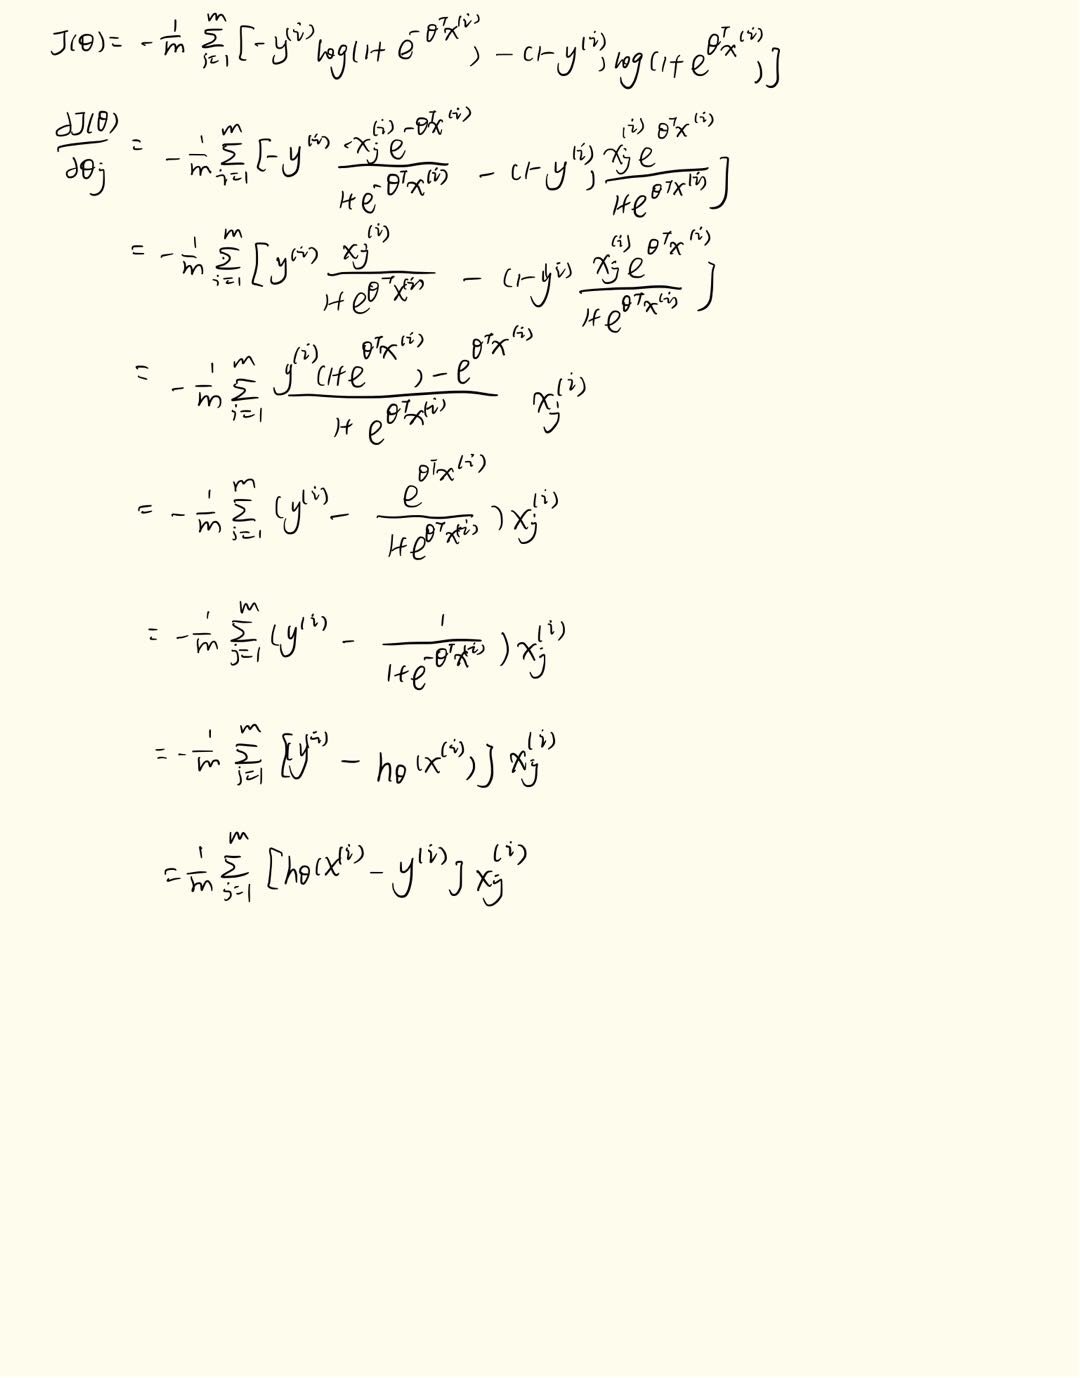 J(θ) = -\frac{1}{m} \sum_{i=1}^{m} [-y^{(i)} log(1+e^{-θ^T x^{(i)}}) - (1-y^{(i)}) log(1+e^{θ^T x^{(i)}})]
\frac{dJ(θ)}{dθ_j} = -\frac{1}{m} \sum_{i=1}^{m} [-y^{(i)} \frac{-x_j^{(i)} e^{-θ^T x^{(i)}}}{1+e^{-θ^T x^{(i)}}} - (1-y^{(i)}) \frac{x_j^{(i)} e^{θ^T x^{(i)}}}{1+e^{θ^T x^{(i)}}}]
= -\frac{1}{m} \sum_{i=1}^{m} [y^{(i)} \frac{x_j^{(i)}}{1+e^{θ^T x^{(i)}}} - (1-y^{(i)}) \frac{x_j^{(i)} e^{θ^T x^{(i)}}}{1+e^{θ^T x^{(i)}}}]
= -\frac{1}{m} \sum_{i=1}^{m} \frac{y^{(i)}(1+e^{θ^T x^{(i)}}) - e^{θ^T x^{(i)}}}{1+e^{θ^T x^{(i)}}} x_j^{(i)}
= -\frac{1}{m} \sum_{i=1}^{m} (y^{(i)} - \frac{e^{θ^T x^{(i)}}}{1+e^{θ^T x^{(i)}}}) x_j^{(i)}
= -\frac{1}{m} \sum_{i=1}^{m} (y^{(i)} - \frac{1}{1+e^{-θ^T x^{(i)}}}) x_j^{(i)}
= -\frac{1}{m} \sum_{i=1}^{m} [y^{(i)} - hθ(x^{(i)})] x_j^{(i)}
= \frac{1}{m} \sum_{i=1}^{m} [hθ(x^{(i)} - y^{(i)}] x_j^{(i)}